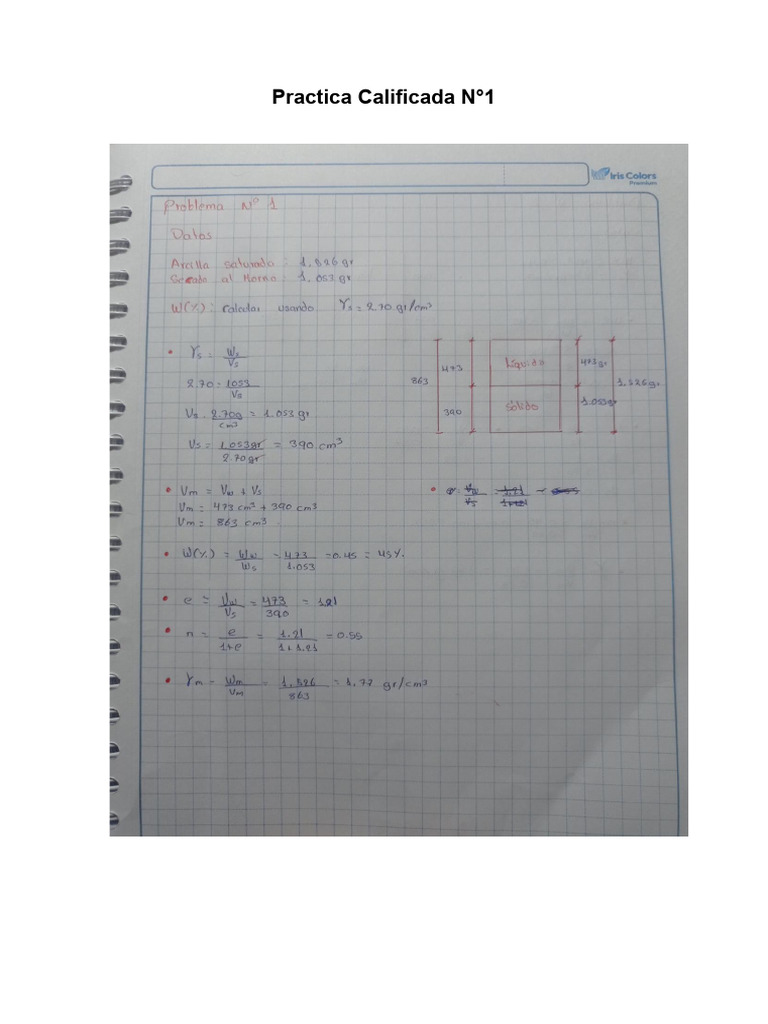 Practica Calificada N°1
Iris Colors
Premium
Problema N° 1
Datos
Arcilla saturado : 1,526 gr
Secado al Horno : 1,053 gr
W(%) : calcular usando γs = 2.70 gr/cm³
• γs = Ws / Vs
2.70 = 1053 / Vs
Vs . 2.70g / cm³ = 1.053 gr
Vs = 1.053gr / 2.70gr = 390 cm³
863 473 Líquido 473gr 1.526gr
390 Sólido 1.053gr
• Vm = Vw + Vs
Vm = 473 cm³ + 390 cm³
Vm = 863 cm³
• W(%) = Ww / Ws = 473 / 1.053 = 0.45 = 45%
• e = Vw / Vs = 473 / 390 = 1.21
• n = e / 1+e = 1.21 / 1+1.21 = 0.55
• γm = Wm / Vm = 1.526 / 863 = 1.77 gr/cm³